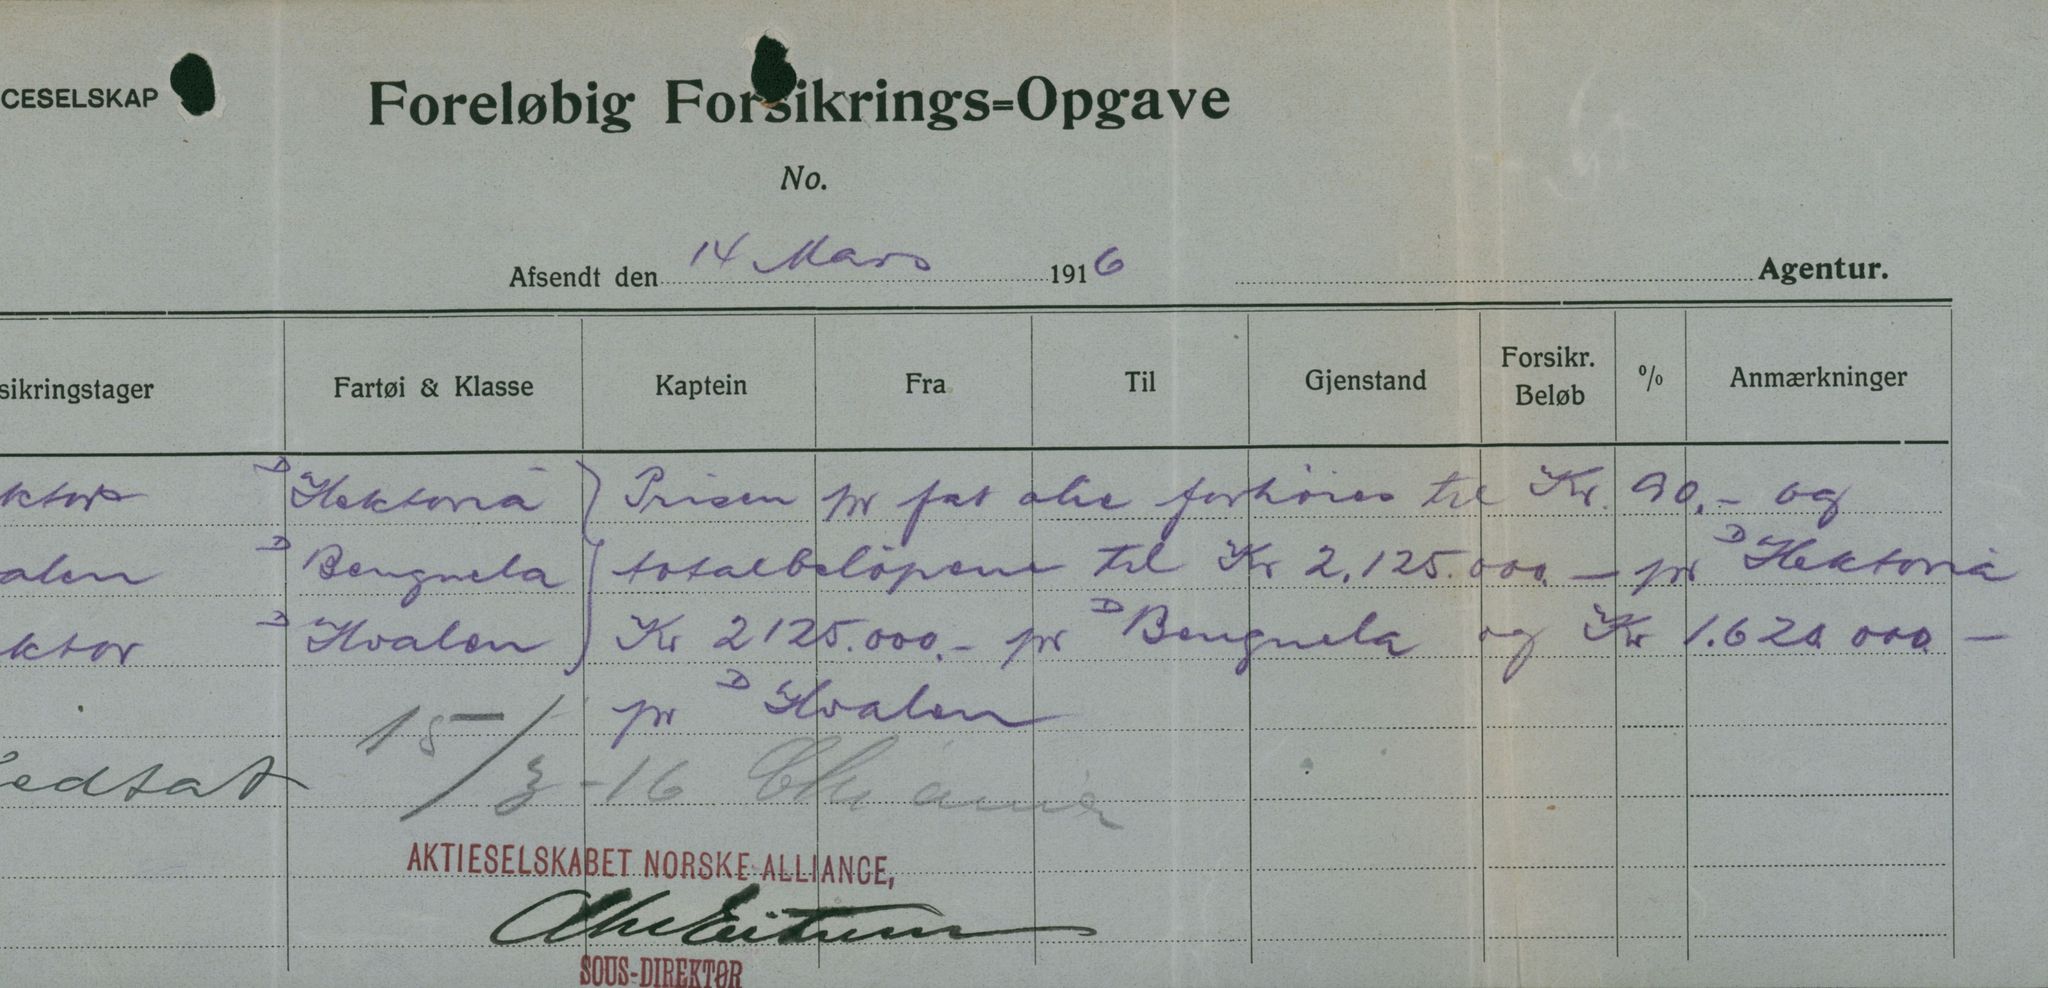 CESELSKAP
Foreløbig Forsikrings=Opgave
No.
Afsendt den 14 Mars 1916 Agentur.
sikringstager Fartøi & Klasse Kaptein Fra Til Gjenstand Forsikr. Beløb % Anmærkninger
ktor D Hektoria Prisen pr fat olie forhöies til Kr. 90,- og
alen D Benguela totalbelöpene til Kr 2.125.000.— pr D Hektoria
ktor D Hvalen Kr 2125.000.- pr D Benguela og Kr 1.620.000 —
pr D Hvalen
edtat 15/3-16 Chriania
AKTIESELSKABET NORSKE ALLIANCE,
SOUS-DIREKTØR